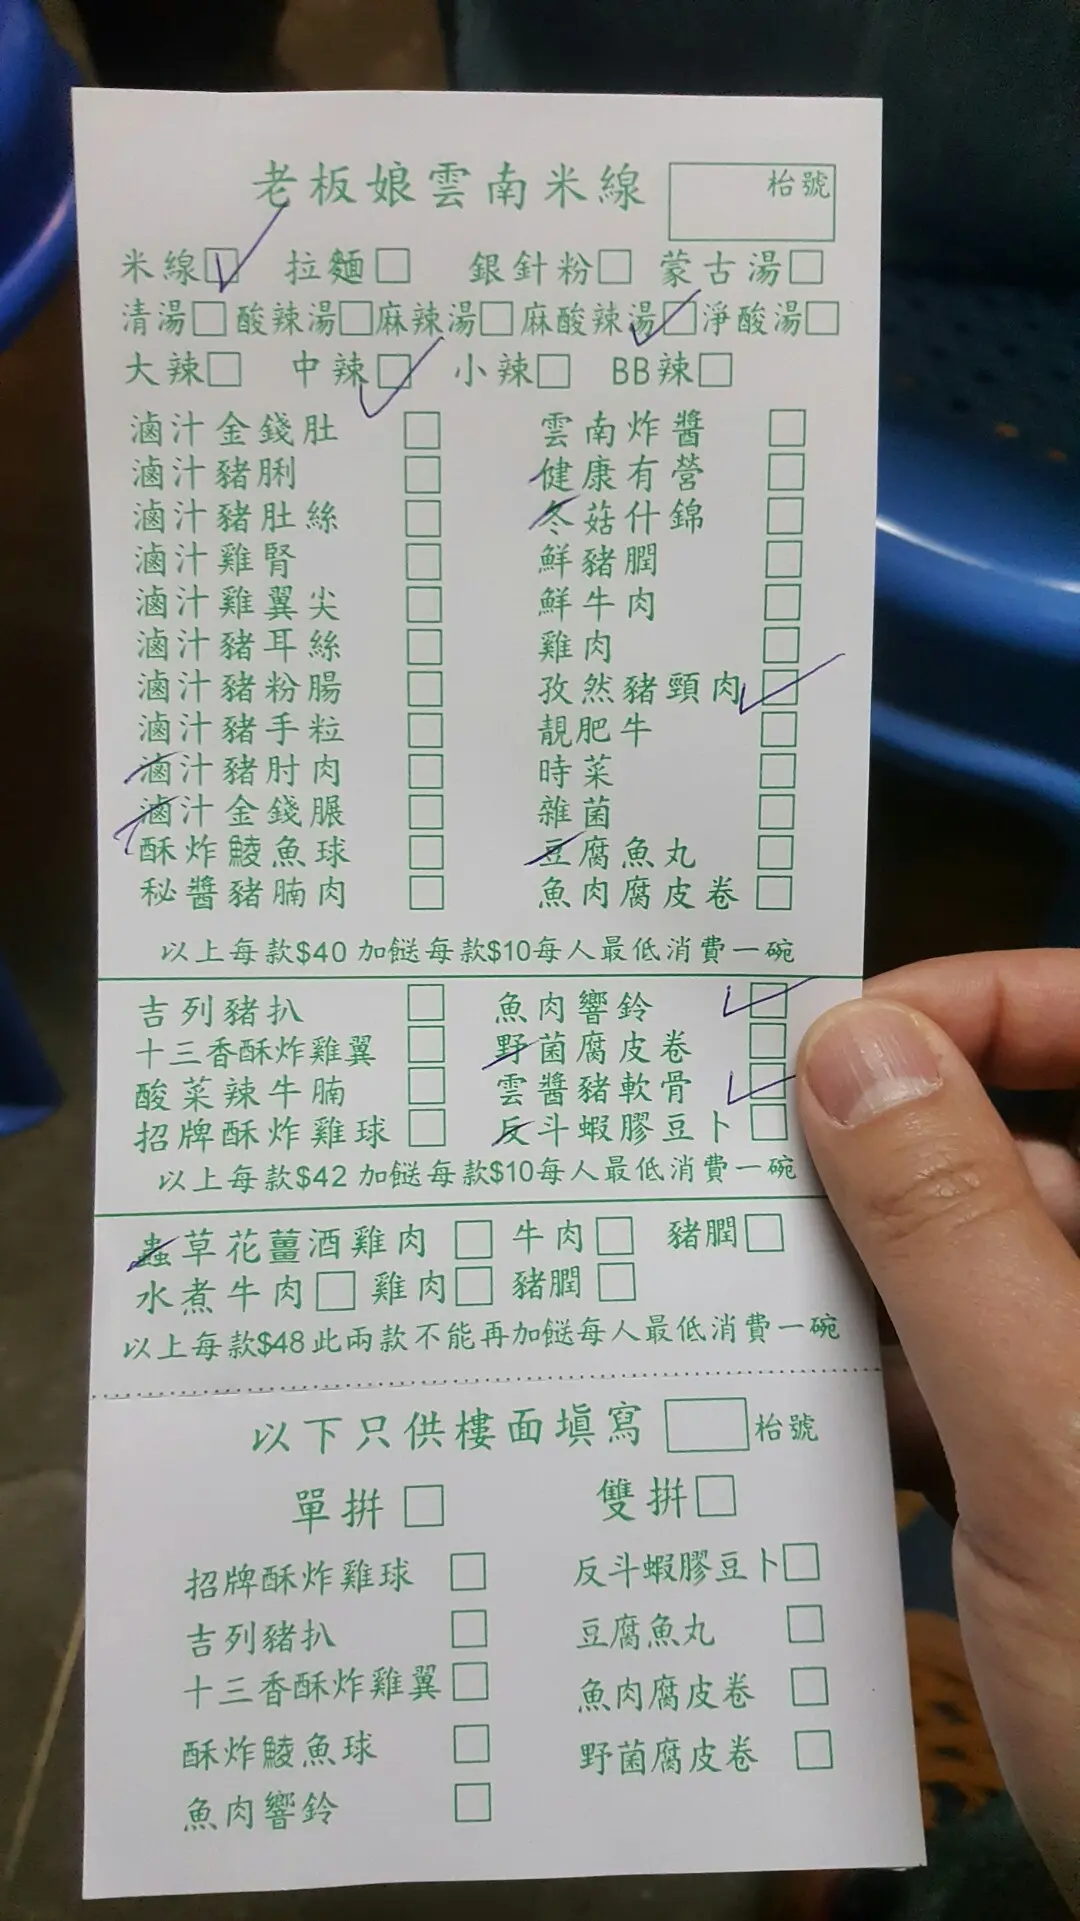 老板娘雲南米線 枱號
米線 拉麵 銀針粉 蒙古湯
清湯 酸辣湯 麻辣湯 麻酸辣湯 淨酸湯
大辣 中辣 小辣 BB辣
滷汁金錢肚 雲南炸醬
滷汁豬脷 健康有營
滷汁豬肚絲 冬菇什錦
滷汁雞腎 鮮豬膶
滷汁雞翼尖 鮮牛肉
滷汁豬耳絲 雞肉
滷汁豬粉腸 孜然豬頸肉
滷汁豬手粒 靚肥牛
滷汁豬肘肉 時菜
滷汁金錢脤 雜菌
酥炸鯪魚球 豆腐魚丸
秘醬豬腩肉 魚肉腐皮卷
以上每款$40 加餸每款$10每人最低消費一碗
吉列豬扒 魚肉響鈴
十三香酥炸雞翼 野菌腐皮卷
酸菜辣牛腩 雲醬豬軟骨
招牌酥炸雞球 反斗蝦膠豆卜
以上每款$42 加餸每款$10每人最低消費一碗
蟲草花薑酒雞肉 牛肉 豬膶
水煮牛肉 雞肉 豬膶
以上每款$48此兩款不能再加餸每人最低消費一碗
以下只供樓面填寫 枱號
單拼 雙拼
招牌酥炸雞球 反斗蝦膠豆卜
吉列豬扒 豆腐魚丸
十三香酥炸雞翼 魚肉腐皮卷
酥炸鯪魚球 野菌腐皮卷
魚肉響鈴